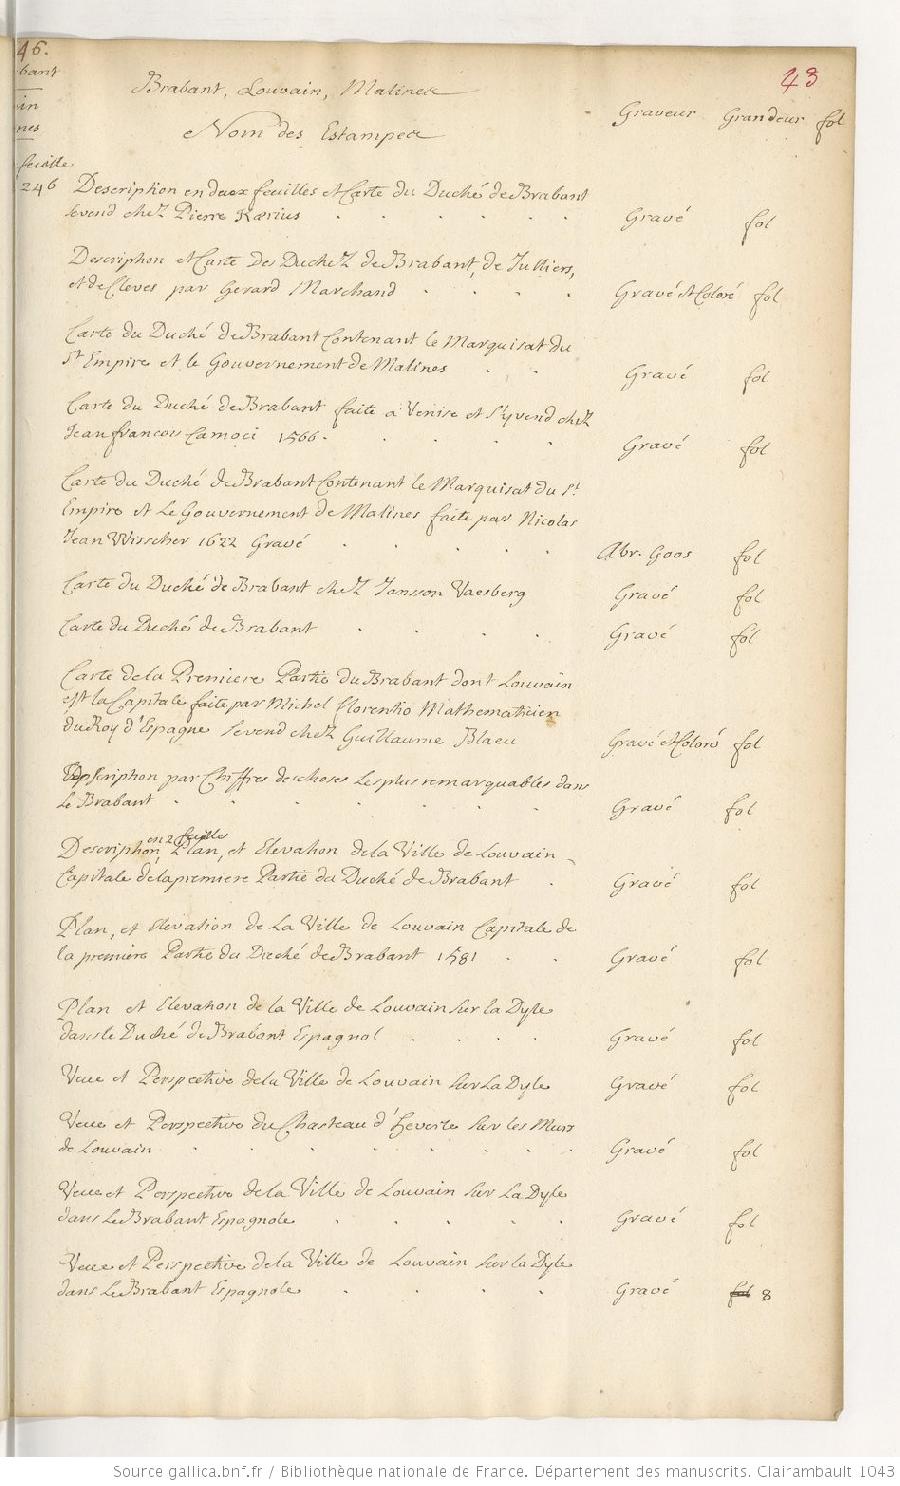 46.
43
bant
in
nes
feuille
246
Brabant, Louvain, Malines
Nom des Estampes
Graveur Grandeur fol
Description en deux feuilles et Carte du Duché de Brabant
se vend chez Pierre Kærius . . . . . . Gravé fol
Description et Carte des Duchez de Brabant, de Julliers,
et de Cleves par Gerard Marchand . . . . Gravé et Coloré fol
Carte du Duché de Brabant Contenant le Marquisat du
St Empire et le Gouvernement de Malines . . Gravé fol
Carte du Duché de Brabant faite a Venise et s'y vend chez
Jean francois Camoci 1566. . . . . Gravé fol
Carte du Duché de Brabant Contenant le Marquisat du St
Empire et Le Gouvernement de Malines faite par Nicolas
Jean Wisscher 1622 Gravé . . . . . Abr. Goos fol
Carte du Duché de Brabant chez Jansson Vaesberg Gravé fol
Carte du Duché de Brabant . . . . Gravé fol
Carte de la Premiere Partie du Brabant dont Louvain
est la Capitale faite par Michel Florentio Mathematicien
du Roy d'Espagne se vend chez Guillaume Blaeu Gravé et Coloré fol
Description par Chiffres des choses les plus remarquables dans
Le Brabant . . . . . . . Gravé fol
en 2 feuilles
Description, Plan, et Elevation de la Ville de Louvain
Capitale de la premiere Partie du Duché de Brabant . Gravé fol
Plan, et Elevation de La Ville de Louvain Capitale de
la premiere Partie du Duché de Brabant 1581 . . Gravé fol
Plan et Elevation de la Ville de Louvain sur la Dyle
dans le Duché de Brabant Espagnol . . . . Gravé fol
Veue et Perspective de la Ville de Louvain sur La Dyle Gravé fol
Veue et Perspective du Chasteau d'Heverle sur les Murs
de Louvain . . . . . . . Gravé fol
Veue et Perspective de la Ville de Louvain sur La Dyle
dans Le Brabant Espagnole . . . . Gravé fol
Veue et Perspective de la Ville de Louvain sur la Dyle
dans Le Brabant Espagnole . . . . Gravé fol 8
Source gallica.bnf.fr / Bibliothèque nationale de France. Département des manuscrits. Clairambault 1043